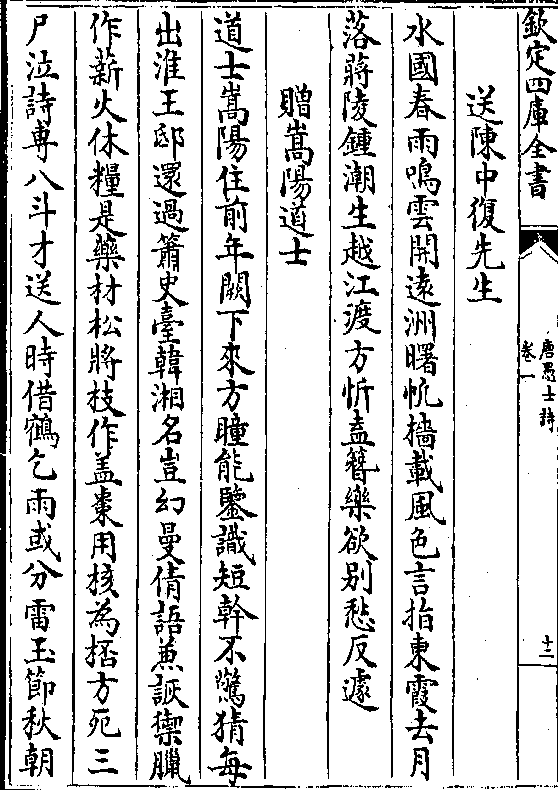 欽定四庫全書
唐愚士詩
卷一
十二
送陳中復先生
水國春雨鳴雲開遠洲曙帆檣載風色言指東霞去月
落蔣陵鍾潮生越江渡方忻盍簮樂欲别愁反遽
贈嵩陽道士
道士嵩陽住前年闕下來方瞳能鑒識短幹不驚猜每
出淮王邸還過簫史臺韓湘名豈幻曼倩語兼詼禦臘
作薪火休糧是藥材松將枝作盖棗用核為桮方死三
尸泣詩專八斗才送人時借鶴乞雨或分雷玉節秋朝